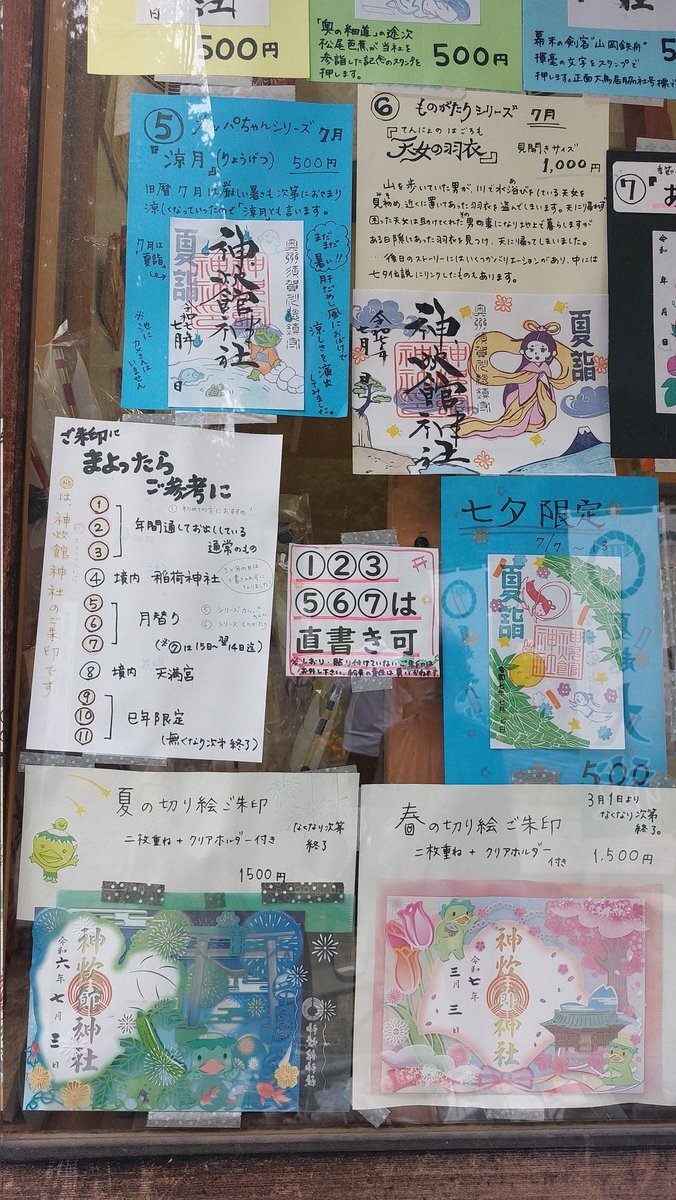 500円
「奥の細道」の途次
松尾芭蕉が当社を
参詣した記念のスタンプを
押します。
500円
幕末の剣客"山岡鉄舟"
揮毫の文字をスタンプで
押します。正面大鳥居脇社号標で
⑤ カッパちゃんシリーズ 7月
『涼月』(りょうげつ) 500円
旧暦7月は厳しい暑さも次第におさまり
涼しくなっていったので「涼月」とも言います。
7月は
夏詣
※池に
カメさんは
いません
夏詣
奥州須賀川総鎮守
神炊館神社
令和七年
七月 日
まだまだ
暑い!!
肝だめし風におばけで
涼しさを演出
してみました。
⑥ ものがたりシリーズ 7月
てんにょ の はごろも
『天女の羽衣』
見開きサイズ
1,000円
山を歩いていた男が、川で水浴びをしている天女を
見初め、近くに置いてあった羽衣を盗んでしまいます。天に帰れず
困った天女は助けてくれた男の妻になり地上で暮らしますが
ある日隠しあった羽衣を見つけ、天に帰ってしまいました。
…後日のストーリーにはいくつかバリエーションがあり、中には
七夕伝説にリンクしたものもあります。
夏詣
奥州須賀川総鎮守
神炊館神社
令和七年
七月 日
⑦
年 月 日
ご朱印に
まよったら
ご参考に
①
②
③
年間通してお出ししている
通常のもの
①初めての方におすすめ!
④ 境内 稲荷神社
⑤
⑥
⑦
月替り
(※⑦は15日~翌14日迄)
⑧ 境内 天満宮
⑨
⑩
⑪
巳年限定
(無くなり次第終了)
は、神炊館神社のご朱印です
①②③
⑤⑥⑦は
直書き可
七夕限定
7/7~15
夏詣
500
夏の切り絵ご朱印
二枚重ね+クリアホルダー付き
なくなり次第
終了
1500円
神炊館神社
令和六年七月三日
神炊館神社
春の切り絵ご朱印
3月1日より
なくなり次第
終了。
二枚重ね + クリアホルダー付き
1,500円
神炊館神社
令和七年
三月三日